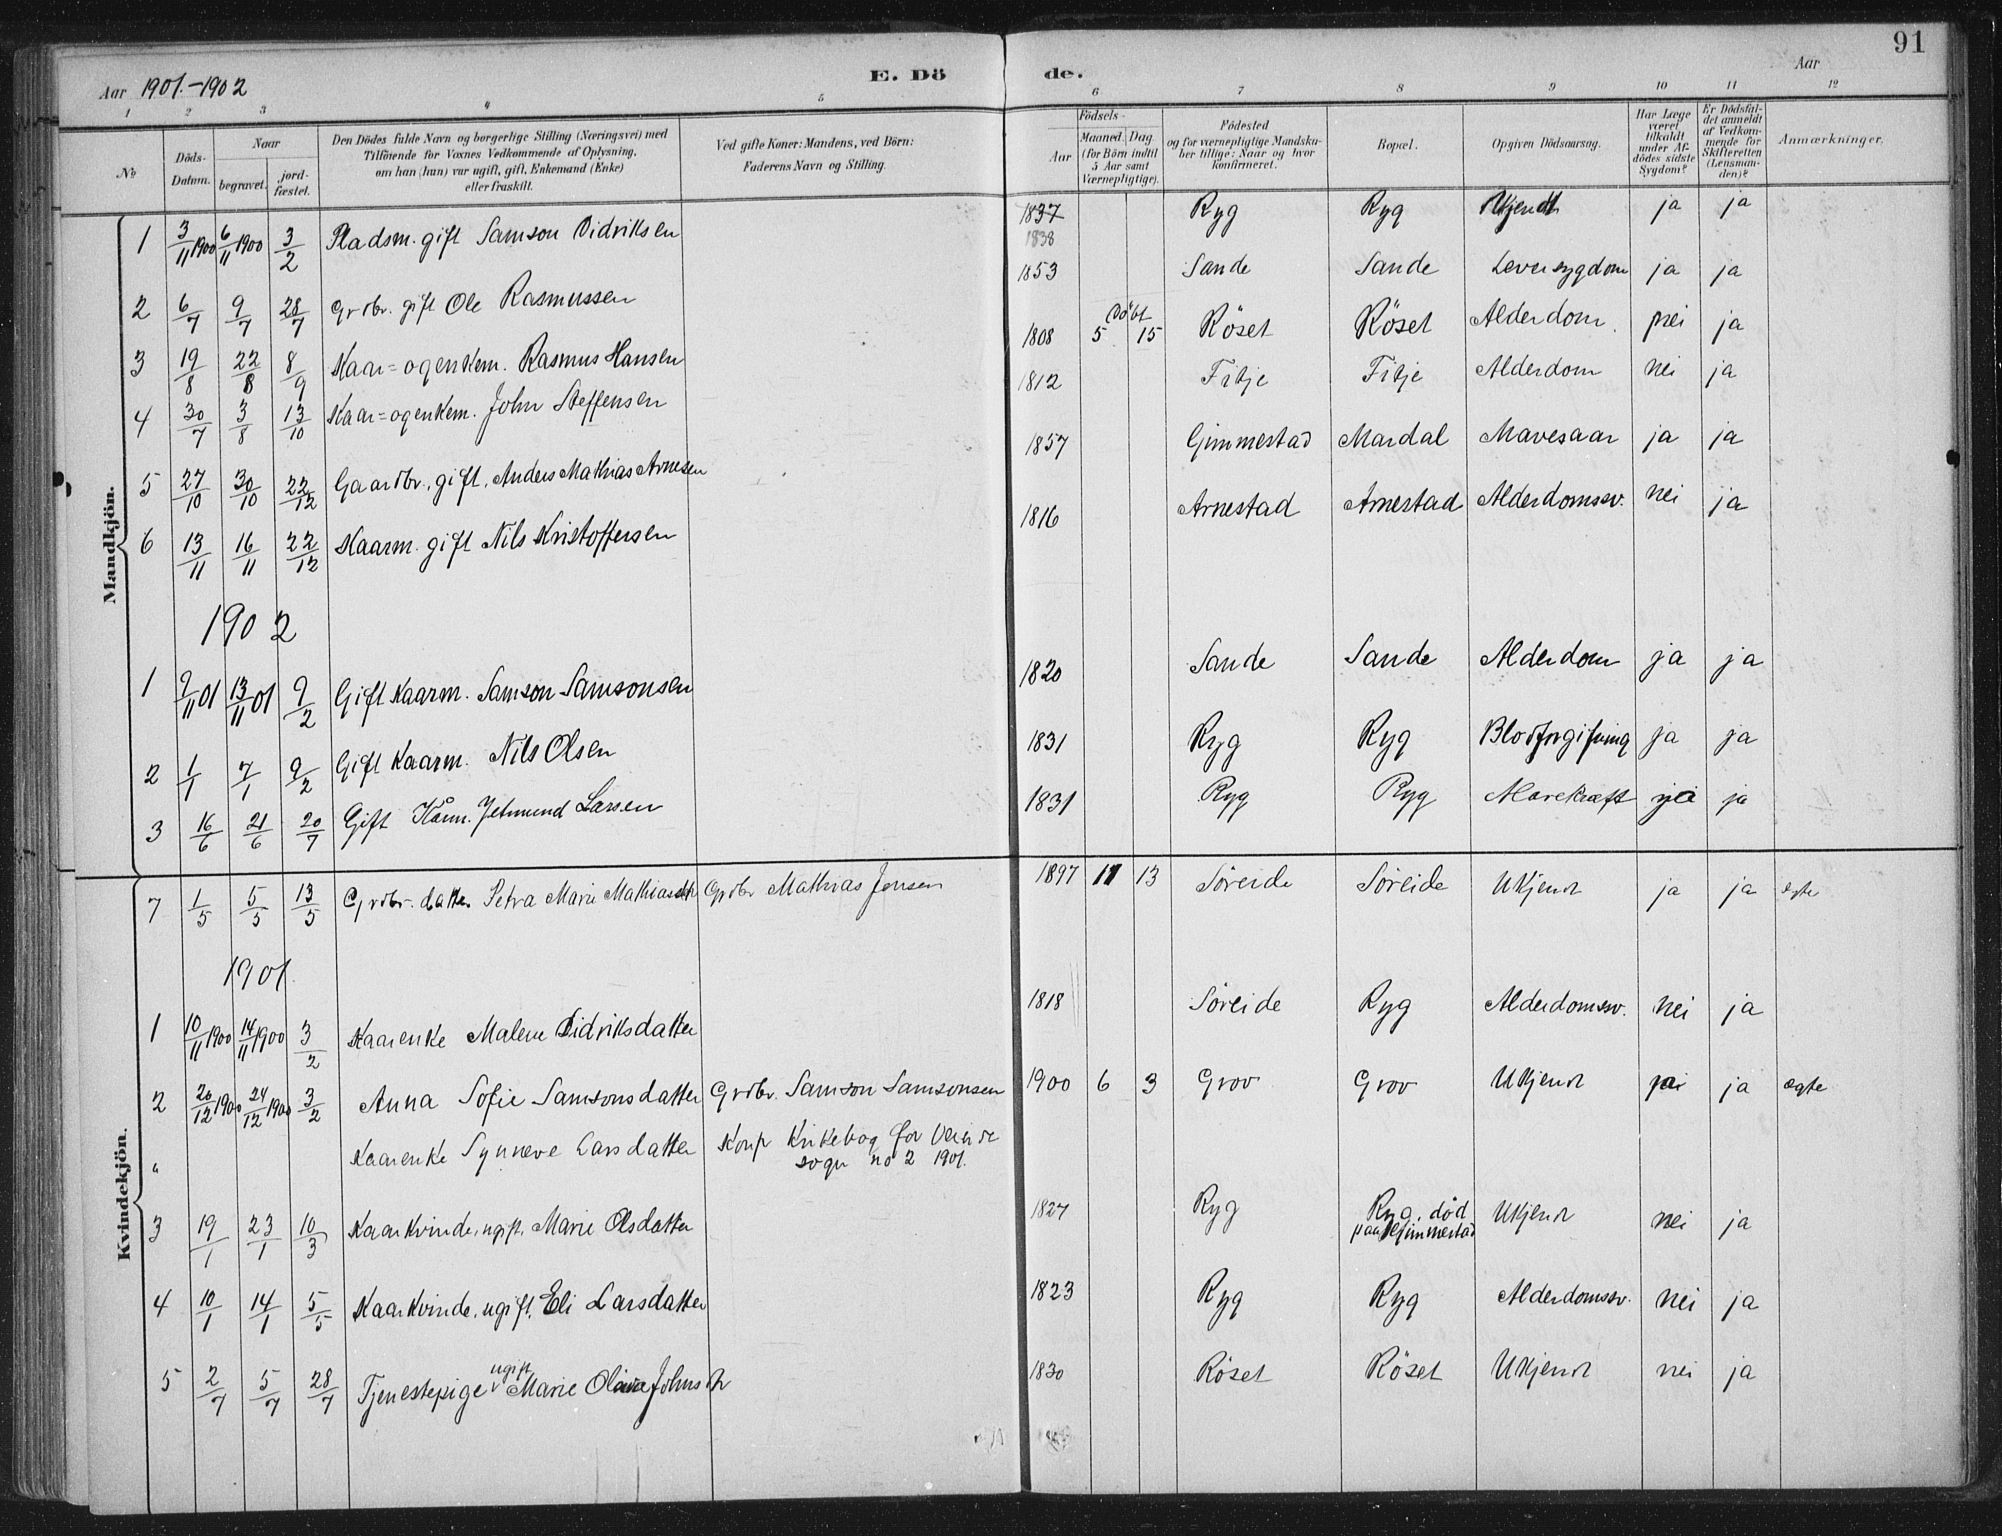 91
Aar 1901.-1902 E. Döde. Aar
1 2 3 4 5 6 7 8 9 10 11 12
No Döds-Datum. Naar begravet. jordfæstet. Den Dödes fulde Navn og borgerlige Stilling (Næringsvei) med Tilföiende for Voxnes Vedkommende af Oplysning, om han (hun) var ugift, gift, Enkemand (Enke) eller fraskilt. Ved gifte Koner: Mandens, ved Börn: Faderens Navn og Stilling. Födsels- Aar Maaned. Dag. (for Börn indtil 5 Aar samt Værnepligtige). Födested og for værnepligtige Mandskaber tillige: Naar og hvor konfirmeret. Bopæl. Opgiven Dödsaarsag. Har Læge været tilkaldt under Afdödes sidste Sygdom? Er Dödsfaldet anmeldt af Vedkommende for Skifteretten (Lensmanden)? Anmærkninger.
Mandkjön.
1 3/11 1900 6/11 1900 3/2 Pladsm. gift Samson Didriksen 1837 1838 Ryg Ryg Ukjendt ja ja
2 6/7 9/7 28/7 Grdbr. gift Ole Rasmussen 1853 Sande Sande Leversygdom ja ja
3 19/8 22/8 8/9 Kaar= og enkem. Rasmus Hansen 1808 döbt 5 15 Röset Röset Alderdom. nei ja
4 30/7 3/8 13/10 Kaar= og enkem. John Steffensen 1812 Fitje Fitje Alderdom nei ja
5 27/10 30/10 22/12 Gaardbr. gift. Anders Mathias Arnesen 1857 Gimmestad Mardal Mavesaar ja ja
6 13/11 16/11 22/12 Kaarm. gift Nils Kristoffersen 1816 Arnestad Arnestad Alderdomssv. nei ja
1902
1 9/11 01 13/11 01 9/2 Gift Kaarm. Samson Samsonsen 1820 Sande Sande Alderdom ja ja
2 1/1 7/1 9/2 Gift Kaarm. Nils Olsen 1831 Ryg Ryg Blodforgiftning ja ja
3 16/6 21/6 20/7 Gift Kårm. Jetmund Larsen 1831 Ryg Ryg Mavekræft ja ja
Kvindekjön.
7 1/5 5/5 13/5 Grdbr. datter Petra Marie Mathiasdtr Grdbr Mathias Jensen 1897 11 13 Söreide Söreide Ukjendt ja ja egte
1901.
1 10/11 1900 14/11 1900 3/2 Kaarenke Malene Didriksdatter 1818 Söreide Ryg Alderdomssv. nei ja
2 20/12 1900 24/12 1900 3/2 Anna Sofie Samsonsdatter Grdbr. Samson Samsonsen 1900 6 3 Grov Grov Ukjendt nei ja egte
" Kaarenke Synneve Larsdatter Konf Kirkebog for Vereide
sogn no 2 1901.
3 19/1 23/1 10/3 Kaarkvinde, ugift, Marie Olsdatter 1827 Ryg Ryg, död paa Gimmestad Ukjendt nei ja
4 10/1 14/1 5/5 Kaarkvinde, ugift, Eli Larsdatter 1823 Ryg Ryg Alderdomssv. nei ja
5 2/7 5/7 28/7 Tjenestepige ugift Marie Oline Johnsdtr 1830 Röset Röset Ukjendt nei ja